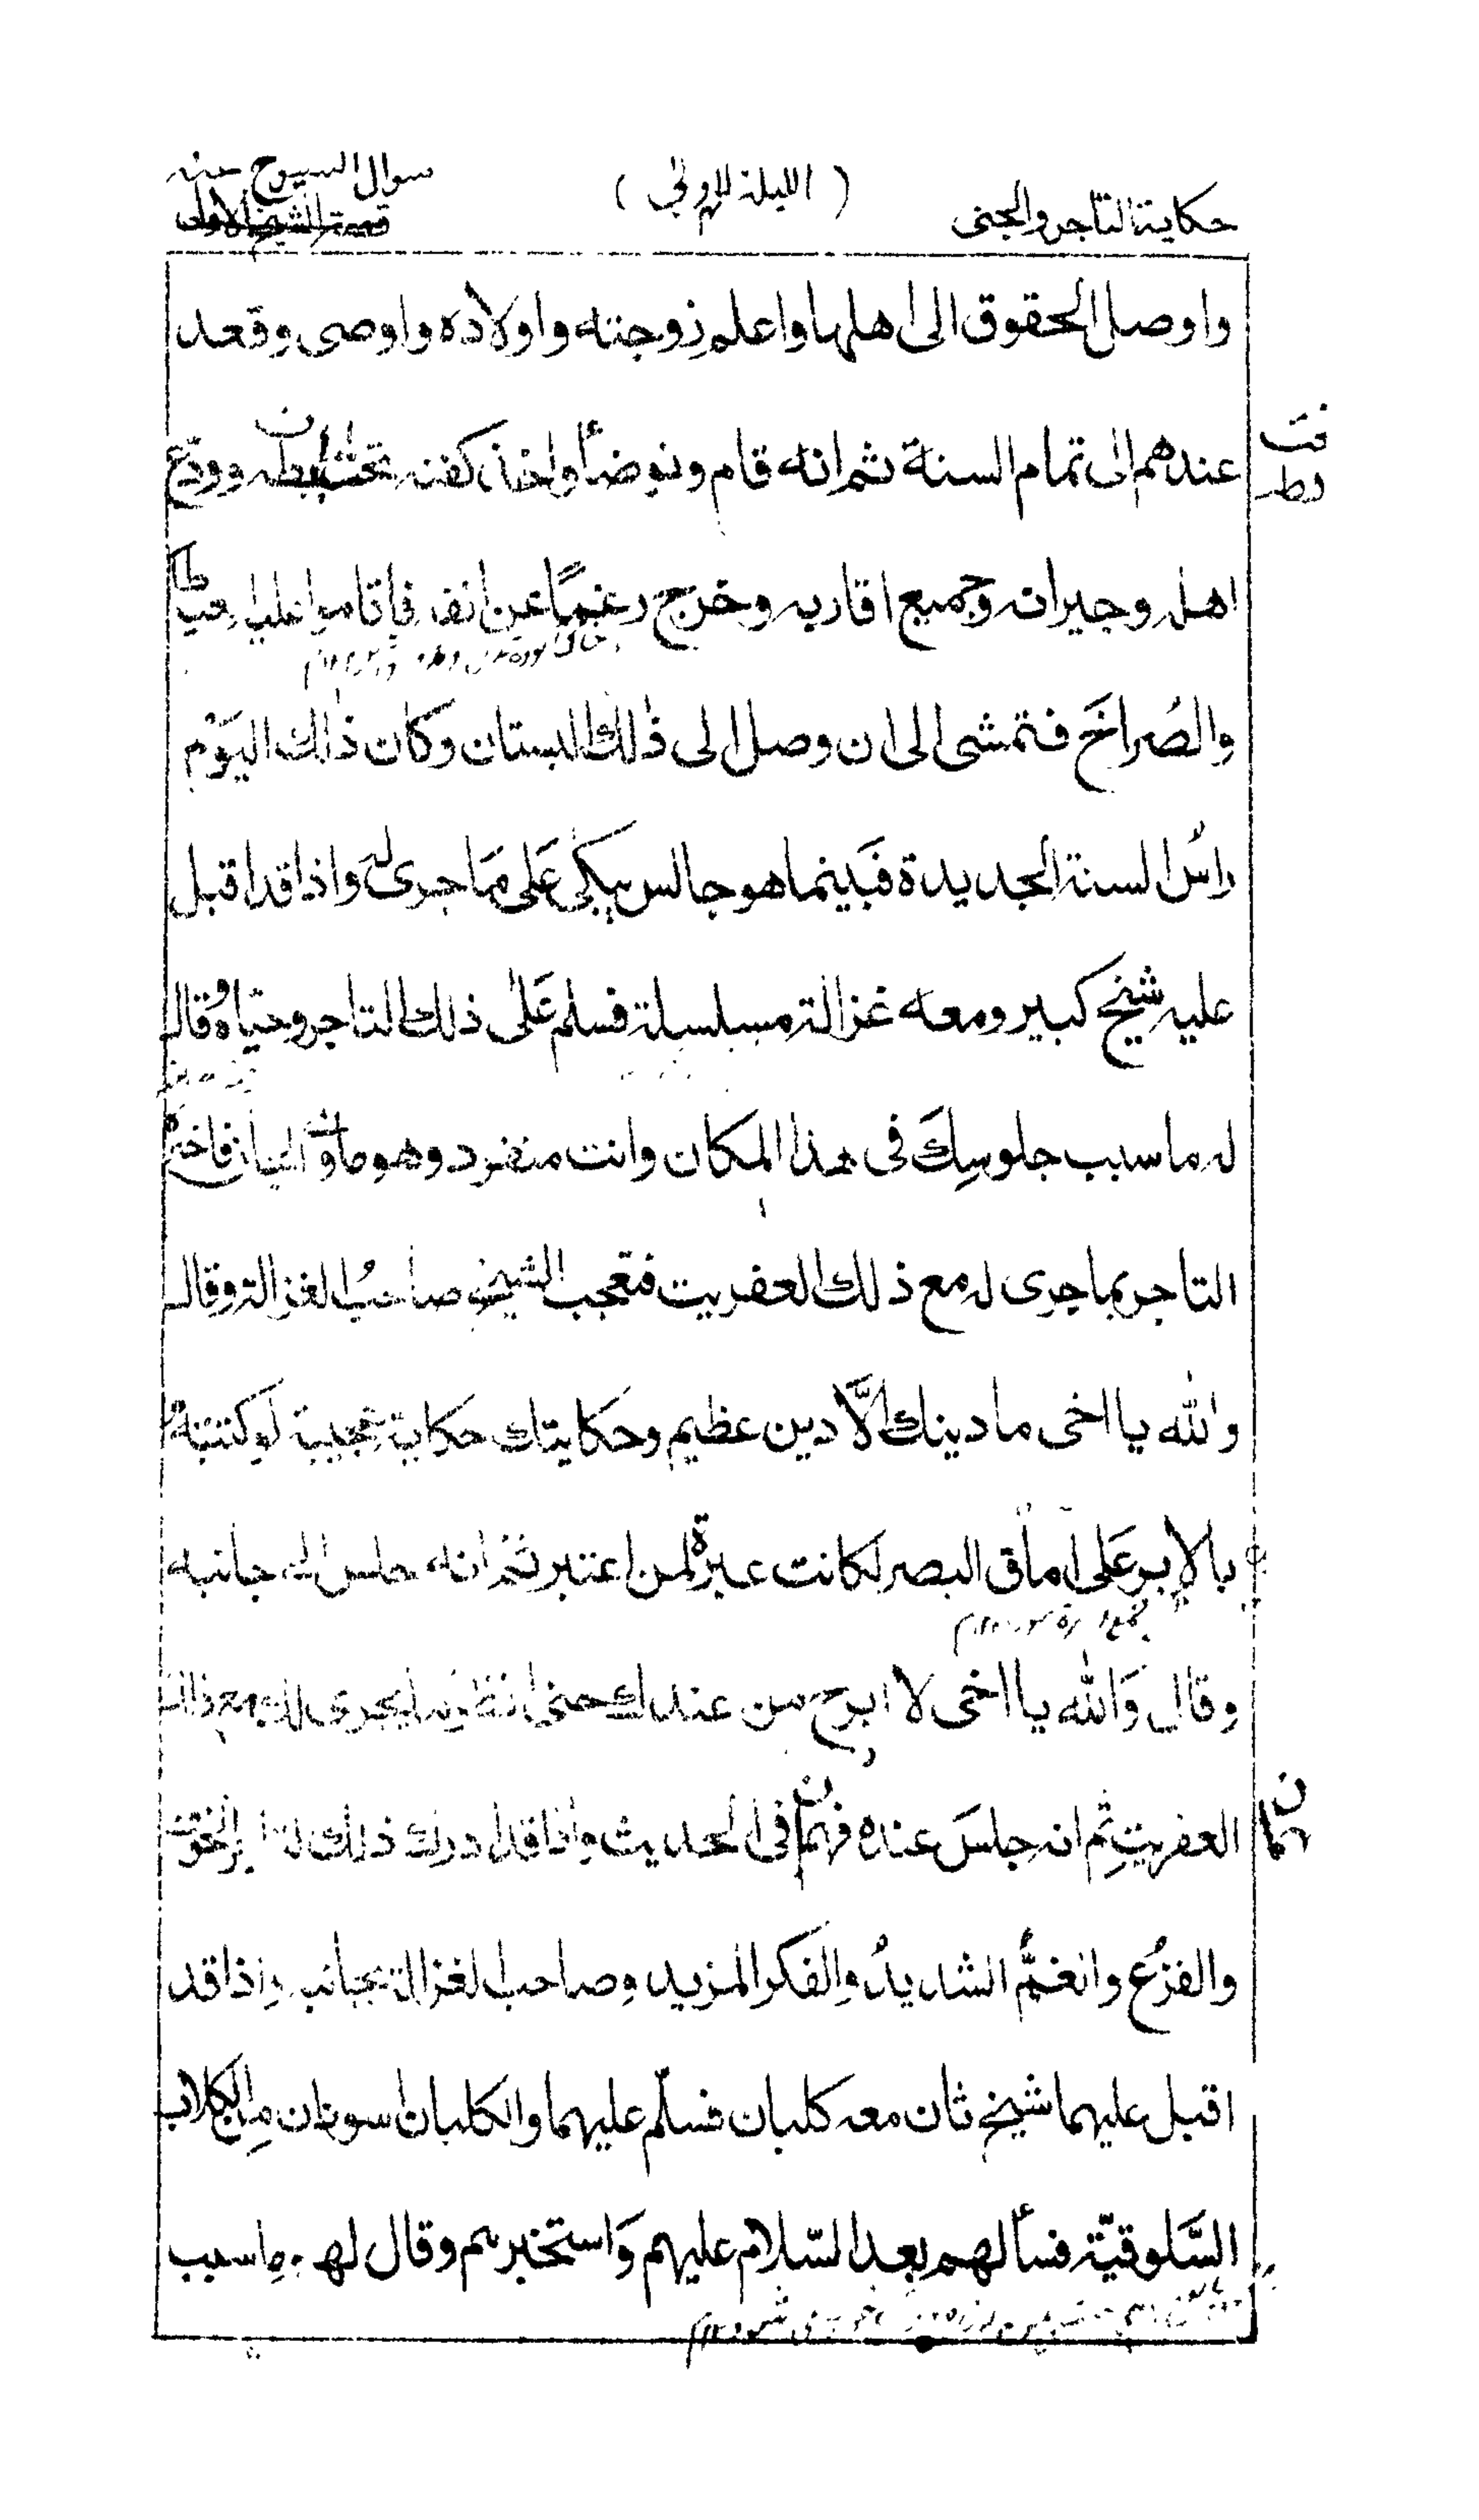 حكاية التاجر والجنى
(الليلة الاولى)
سوال الشيوخ منه
قصة الشيخ الاولى
واوصل الحقوق الى اهلها واعلم زوجته واولاده واوصى وقعد
عندهم الى تمام السنة ثم انه قام وتوضأ واخذ كفنه تحت ابطه وودع
اهله وجيرانه وجميع اقاربه وخرج رغمًا عن انفه فاقاموا عليه العياط
والصُراخَ فتمشى الى ان وصل الى ذٰلك البستان وكان ذٰلك اليَوْم
راسُ السنة الجديدة فبَينما هو جالس يبكى عَلى مَا جرى لهَ واذا قد اقبل
عليه شيخ كبير ومعه غزالة مسلسلة فسلم عَلٰى ذلك التاجر وحيّاهُ وقال
له ما سبب جلوسِكَ فى هذا المكان وانت منفرد وهو ماوى الجان فاخبرهُ
التاجر بما جرى له مع ذلك العفريت فتعجب الشيخ صاحبُ الغزالة وقال
والله يا اخى ما دينك الّا دين عظيم وحكايتك حكاية عجيبة لو كتبت
بالابر عَلى اٰماق البصر لكانت عبرةً لمن اعتبر ثمّ انه جلس الى جانبه
وقال وَالله يا اخى لا ابرح من عندك حتى انظر ما يجرى لك مع ذلك
العفريتِ ثم انه جلسَ عنده فهما فى الحديث واذا قد ادرك ذلك التاجر الخوف
والفزعُ والغمُّ الشديدُ والفكر المزيد وصاحب الغزالة بجانبه واذا قد
اقبل عليهما شيخ ثان معه كلبان فسلّم عليهما والكلبان اسودان من الكلاب
السَّلوقيّة فسألهم بعد السّلام عليهم وَاستخبرهم وقال لهم ما سبب